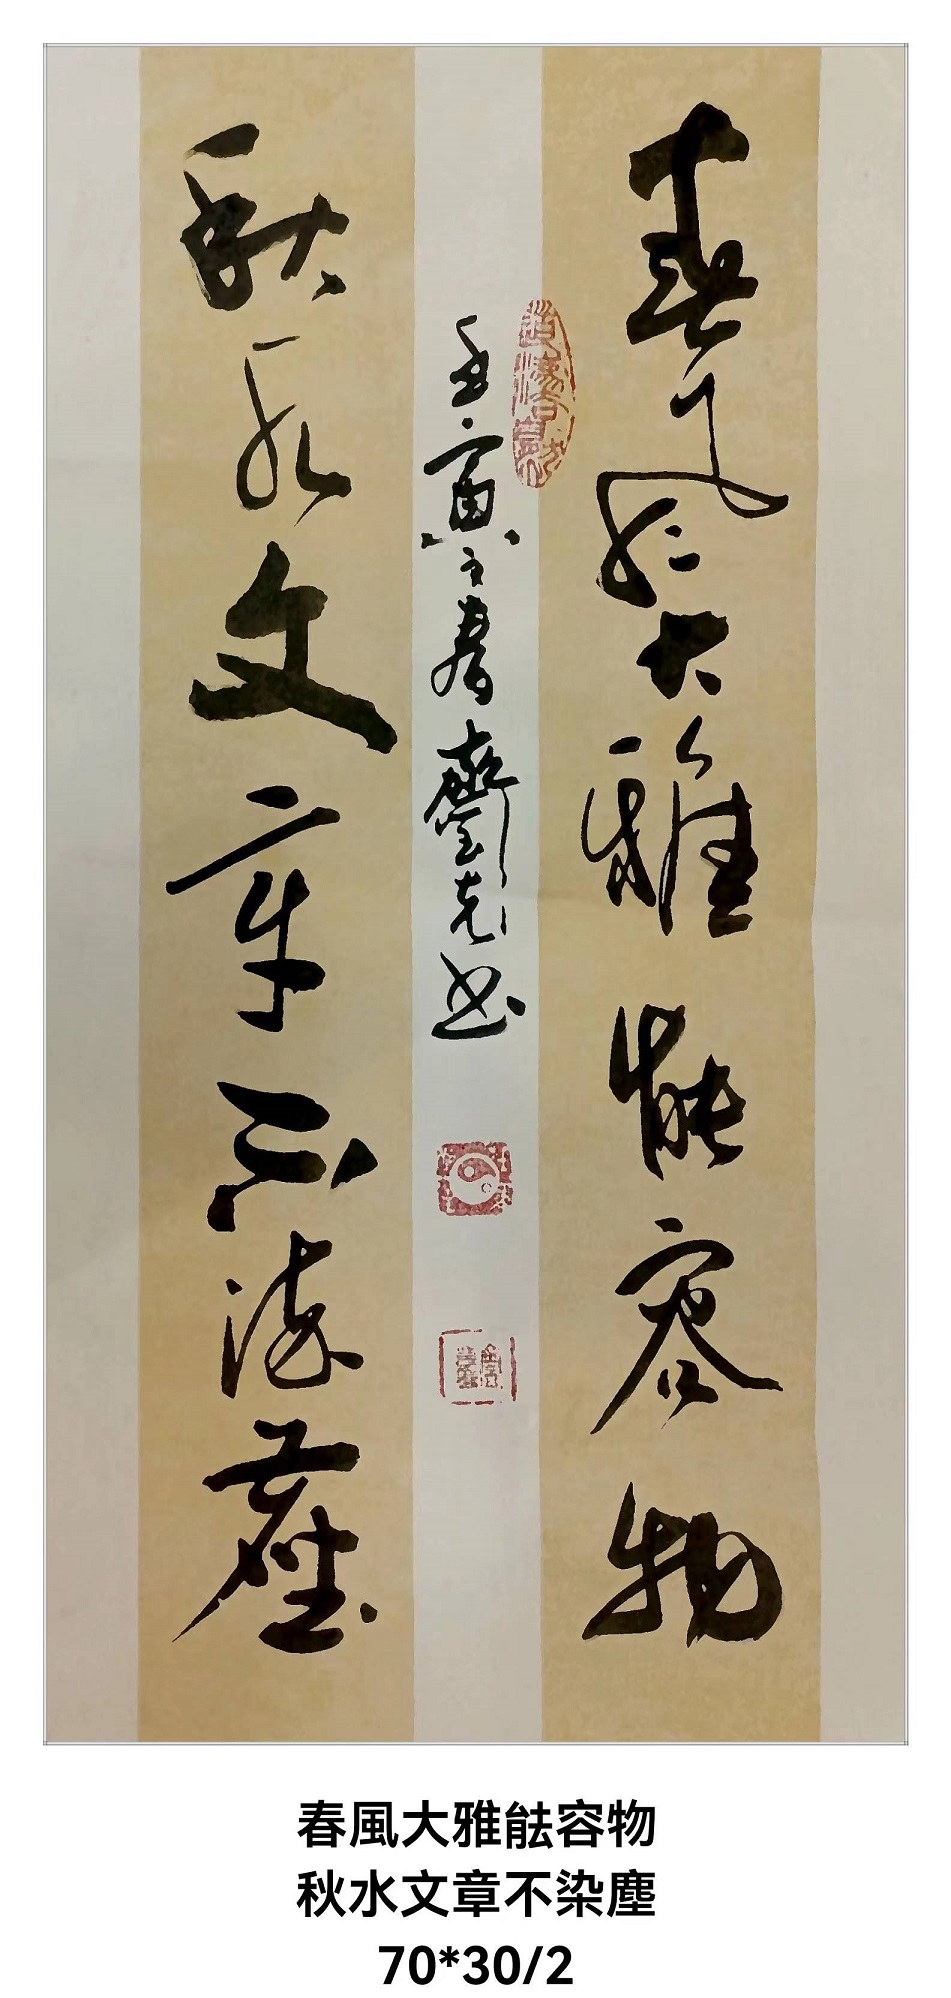 春風大雅能容物
壬寅之春 书
秋水文章不染塵
春風大雅䏻容物
秋水文章不染塵
70*30/2